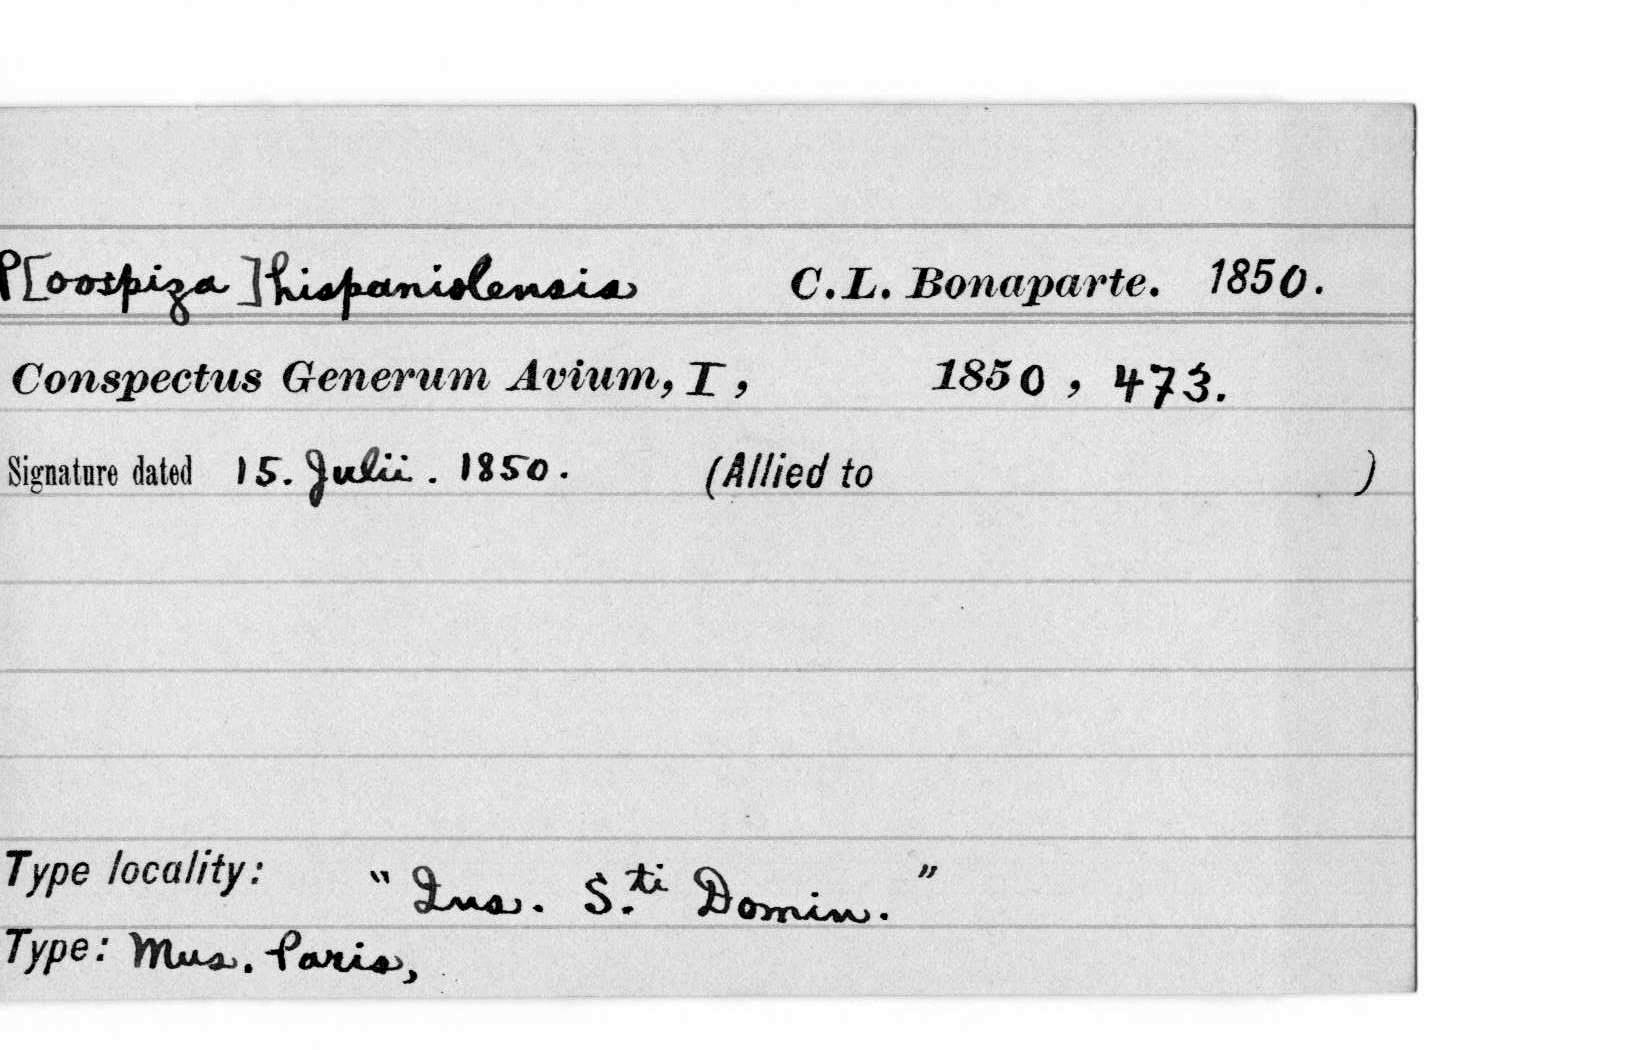 P[oospiza] hispaniolensis C.L. Bonaparte. 1850.
Conspectus Generum Avium, I, 1850, 473.
Signature dated 15. Julii. 1850. (Allied to )
Type locality: "Ins. S.ti Domin."
Type: Mus. Paris,